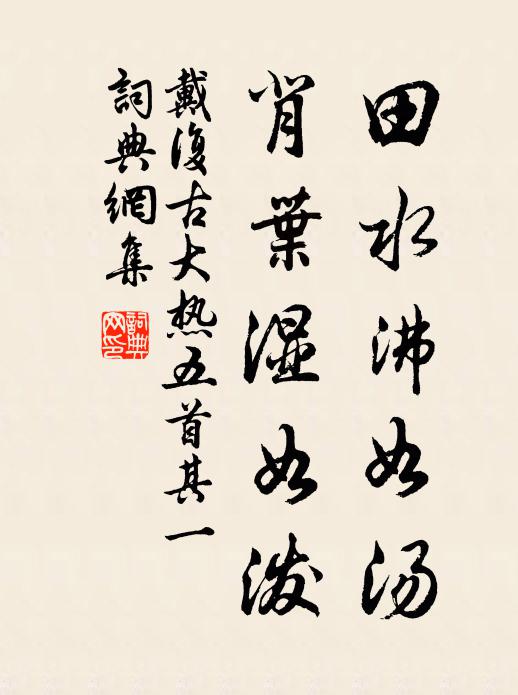 田水沸如汤
背葉湿如泼
戴復古大热五首其一
詞典網集
詞典
网印